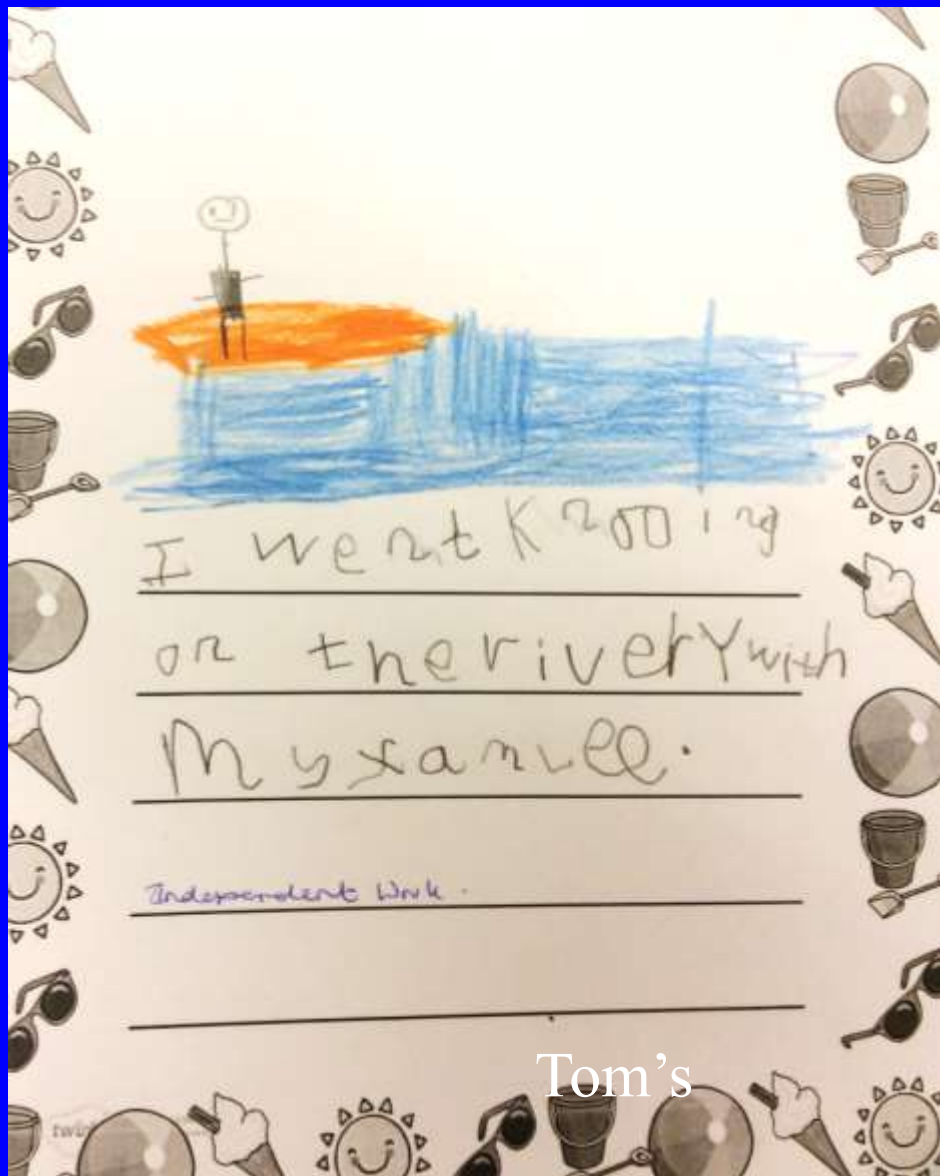 I went Knooing
on the riverY with
My xamilee.
Independent Work.
Tom's
twin